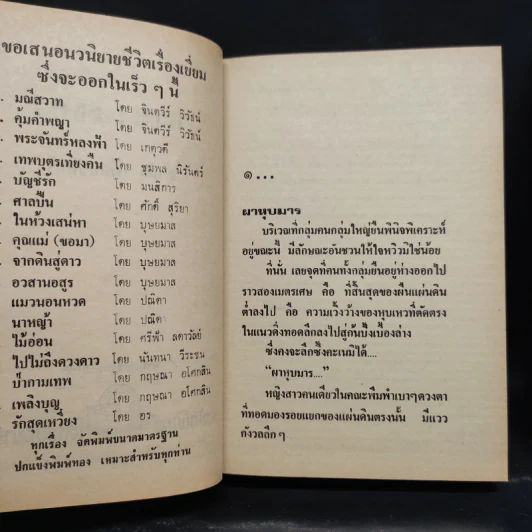 ขอเสนอนวนิยายชีวิตเรื่องเยี่ยม
ซึ่งจะออกในเร็ว ๆ นี้
มณีสวาท โดย จินตวีร์ วิวัธน์
คุ้มคำพญา โดย จินตวีร์ วิวัธน์
พระจันทร์หลงฟ้า โดย เกตุวดี
เทพบุตรเที่ยงคืน โดย ชุมพล นิรันดร์
บัญชีรัก โดย มนสิการ
ศาลปืน โดย ศักดิ์ สุริยา
ในห้วงเสน่หา โดย บุษยมาส
คุณแม่ (ขอมา) โดย บุษยมาส
จากดินสู่ดาว โดย บุษยมาส
อวสานอสูร โดย บุษยมาส
แมวนอนหวด โดย ปณิตา
นาหญ้า โดย ปณิตา
ไม้อ่อน โดย ศรีฟ้า ลดาวัลย์
ไปไม่ถึงดวงดาว โดย นันทนา วีระชน
ป่ากามเทพ โดย กฤษณา อโศกสิน
เพลิงบุญ โดย กฤษณา อโศกสิน
รักสุดเหวี่ยง โดย อร
ทุกเรื่อง จัดพิมพ์ขนาดมาตรฐาน
ปกแข็งพิมพ์ทอง เหมาะสำหรับทุกท่าน
๑...
ผาหุบมาร
บริเวณที่กลุ่มคนกลุ่มใหญ่ยืนพินิจพิเคราะห์
อยู่ขณะนี้ มีลักษณะอันชวนให้ใจหวิวมิใช่น้อย
ที่นั้น เลยจุดที่คนทั้งกลุ่มยืนอยู่ห่างออกไป
ราวสองเมตรเศษ คือ ที่สิ้นสุดของผืนแผ่นดิน
ต่ำลงไป คือ ความเวิ้งว้างของหุบเหวที่ตัดตรง
ในแนวดิ่งทอดลึกลงไปสู่ก้นบึ้งเบื้องล่าง
ซึ่งคงจะลึกซึ้งคะเนมิได้....
"ผาหุบมาร...."
หญิงสาวคนเดียวในคณะพึมพำเบาๆดวงตา
ที่ทอดมองรอยแยกของแผ่นดินตรงนั้น มีแวว
กังวลลึกๆ